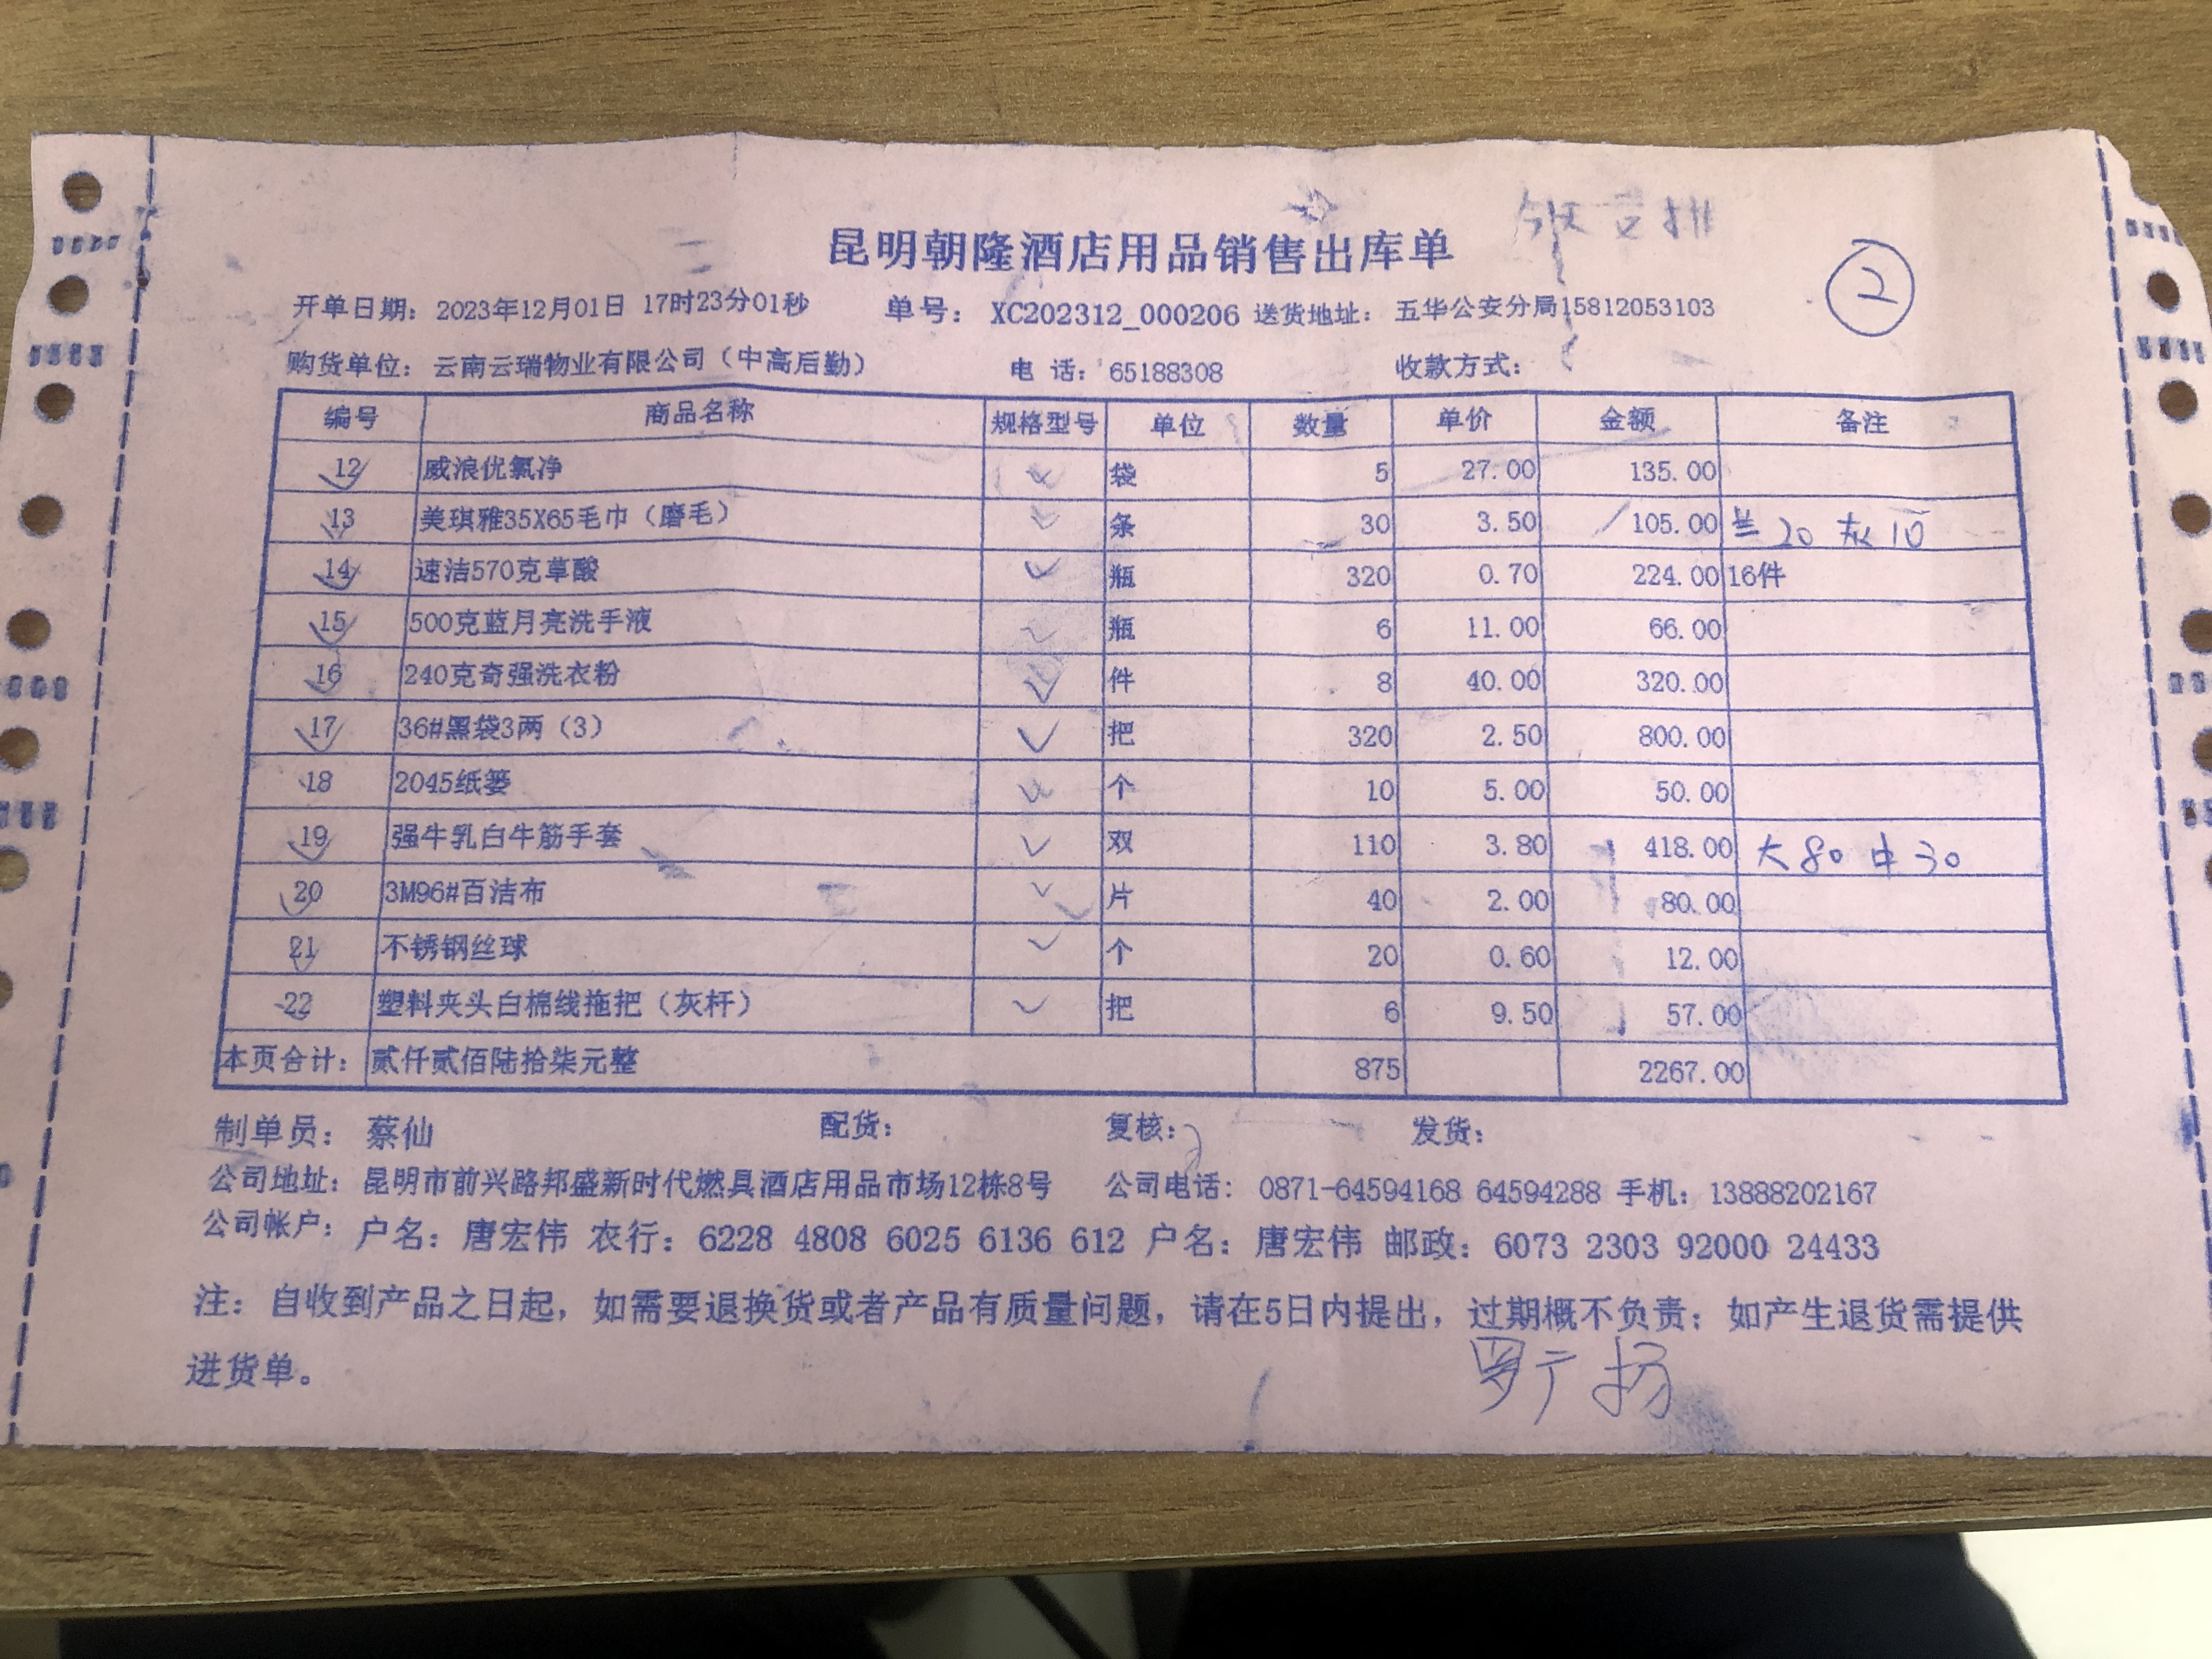 昆明朝隆酒店用品销售出库单
②
开单日期：2023年12月01日 17时23分01秒 单号：XC202312_000206 送货地址：五华公安分局15812053103
购货单位：云南云瑞物业有限公司（中高后勤） 电 话：65188308 收款方式：
编号 商品名称 规格型号 单位 数量 单价 金额 备注
12 威浪优氯净 袋 5 27.00 135.00
13 美琪雅35X65毛巾（磨毛） 条 30 3.50 105.00 兰20 灰10
14 速洁570克草酸 瓶 320 0.70 224.00 16件
15 500克蓝月亮洗手液 瓶 6 11.00 66.00
16 240克奇强洗衣粉 件 8 40.00 320.00
17 36#黑袋3两（3） 把 320 2.50 800.00
18 2045纸篓 个 10 5.00 50.00
19 强牛乳白牛筋手套 双 110 3.80 418.00 大80 中30
20 3M96#百洁布 片 40 2.00 80.00
21 不锈钢丝球 个 20 0.60 12.00
22 塑料夹头白棉线拖把（灰杆） 把 6 9.50 57.00
本页合计：贰仟贰佰陆拾柒元整 875 2267.00
制单员：蔡仙 配货： 复核： 发货：
公司地址：昆明市前兴路邦盛新时代燃具酒店用品市场12栋8号 公司电话：0871-64594168 64594288 手机：13888202167
公司帐户：户名：唐宏伟 农行：6228 4808 6025 6136 612 户名：唐宏伟 邮政：6073 2303 92000 24433
注：自收到产品之日起，如需要退换货或者产品有质量问题，请在5日内提出，过期概不负责；如产生退货需提供
进货单。
罗广扬